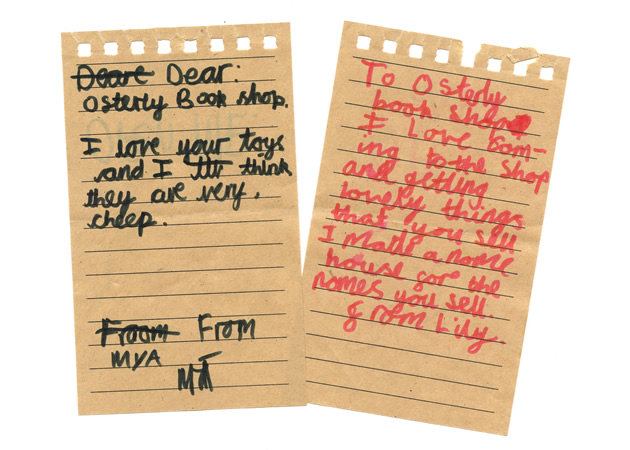 Deare Dear:
Osterly Book shop.
I love your toys
and I think
they are very.
cheep.
Froom From
MYA
To Osterly
book shop
I Love Com-
ing to the shop
and getting
Lovely things
that you sell
I made a nome
house for the
nomes you sell.
From Lily